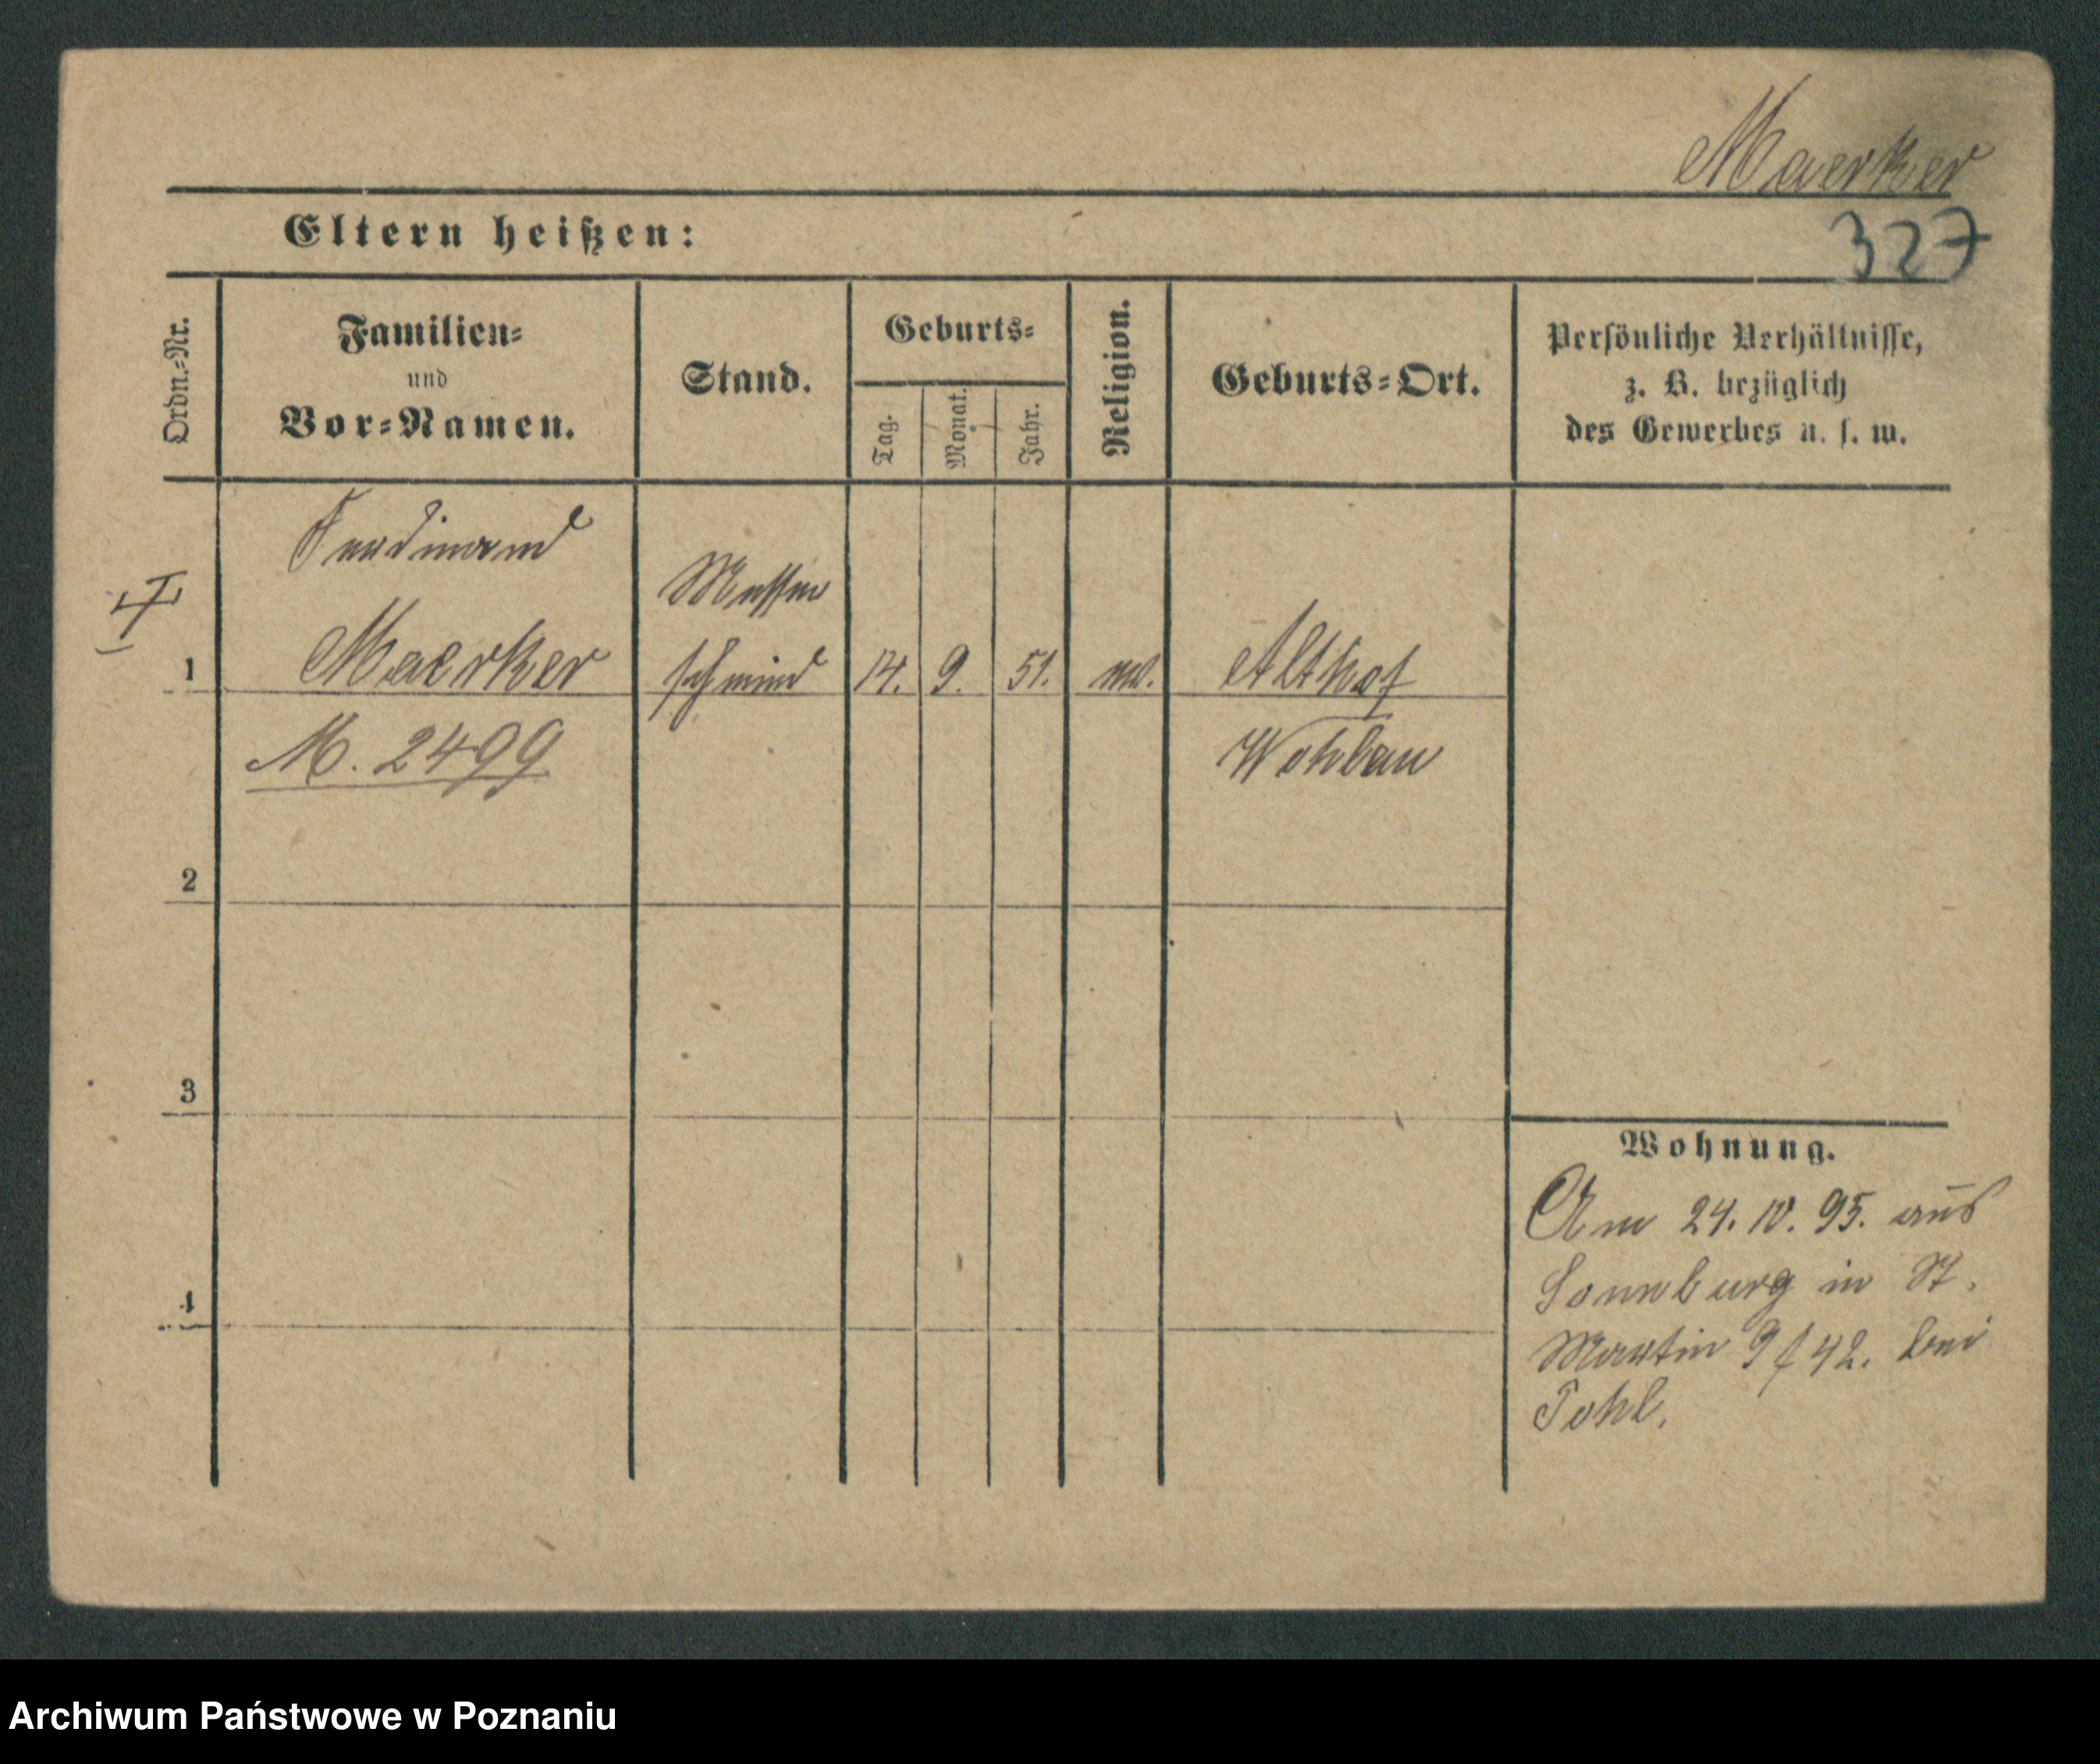 Maerker
327
Eltern heißen:
Ordn.-Nr.
Familien-
und
Vor-Namen.
Stand.
Geburts-
Tag.
Monat.
Jahr.
Religion.
Geburts-Ort.
Persönliche Verhältnisse,
z. B. bezüglich
des Gewerbes u. s. w.
Ferdinand
Messer
1 Maerker schmied 14. 9. 51. Althof
M. 2499 Wohlau
2
3
Wohnung.
Am 24. IV. 95. aus
4
Sonnburg in St.
Martin 42. bei
Pohl.
Archiwum Państwowe w Poznaniu